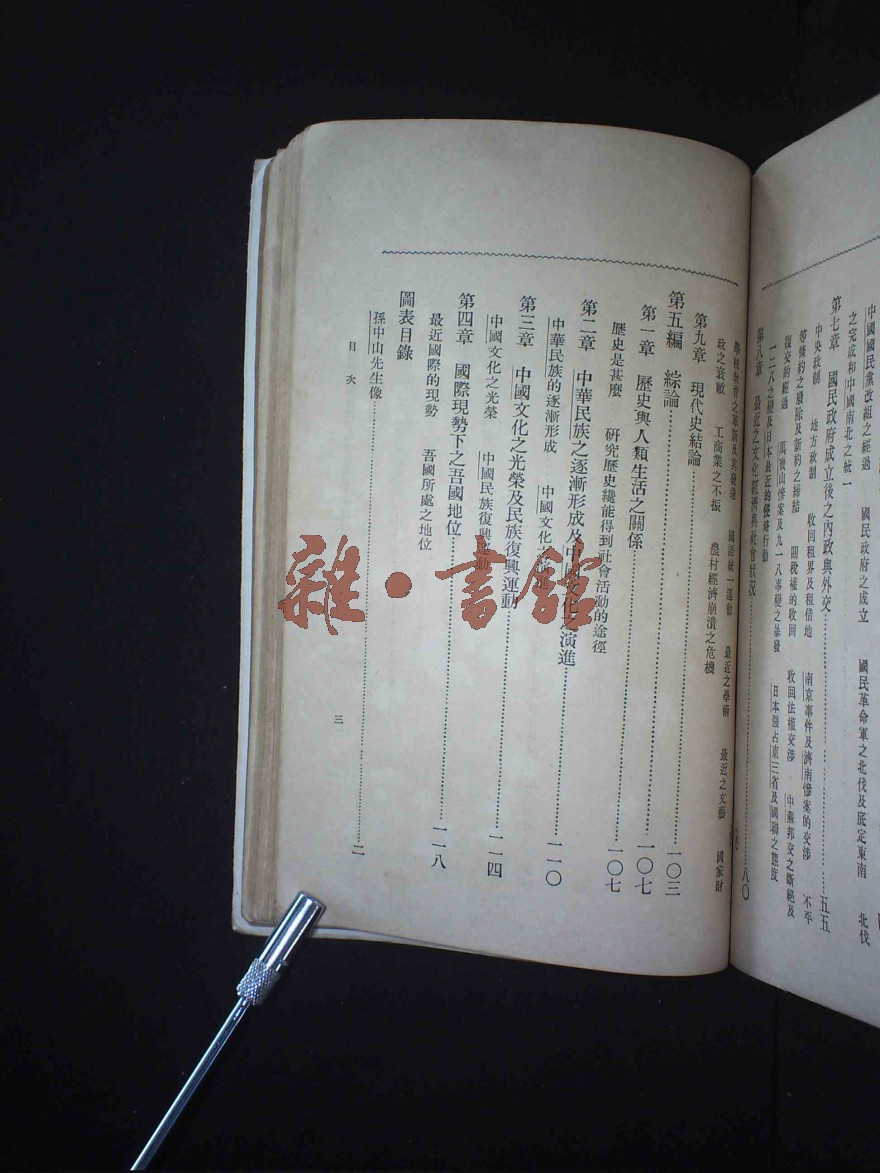 中國國民黨改組之經過 國民政府之成立 國民革命軍之北伐及底定東南 北伐
之完成和中國南北之統一
第七章 國民政府成立後之內政與外交……五五
中央政制 地方政制 收回租界及租借地 南京事件及濟南慘案的交涉 不平
等條約之廢除及新約之締結 關稅權的收回 收回法權交涉 中蘇邦交之斷絕及
復交的經過 萬寶山慘案及九一八事變之暴發 日本強占東三省及國聯之態度
一二八之變及日本最近的侵略行動
第八章 最近之文化經濟與社會狀況……八〇
學校教育之革新及其發達 國語統一運動 最近之學術 最近之文藝 國家財
政之衰敝 工商業之不振 農村經濟崩潰之危機
第九章 現代史結論……一〇三
第五編 綜論
第一章 歷史與人類生活之關係……一〇七
歷史是甚麼 研究歷史纔能得到社會活動的途徑
第二章 中華民族之逐漸形成及中國文化之演進……一一〇
中華民族的逐漸形成 中國文化之演進
第三章 中國文化之光榮及民族復興運動……一一四
中國文化之光榮 中國民族復興運動
第四章 國際現勢下之吾國地位……一一八
最近國際的現勢 吾國所處之地位
圖表目錄
孫中山先生像……二
目次 三
雜·書館